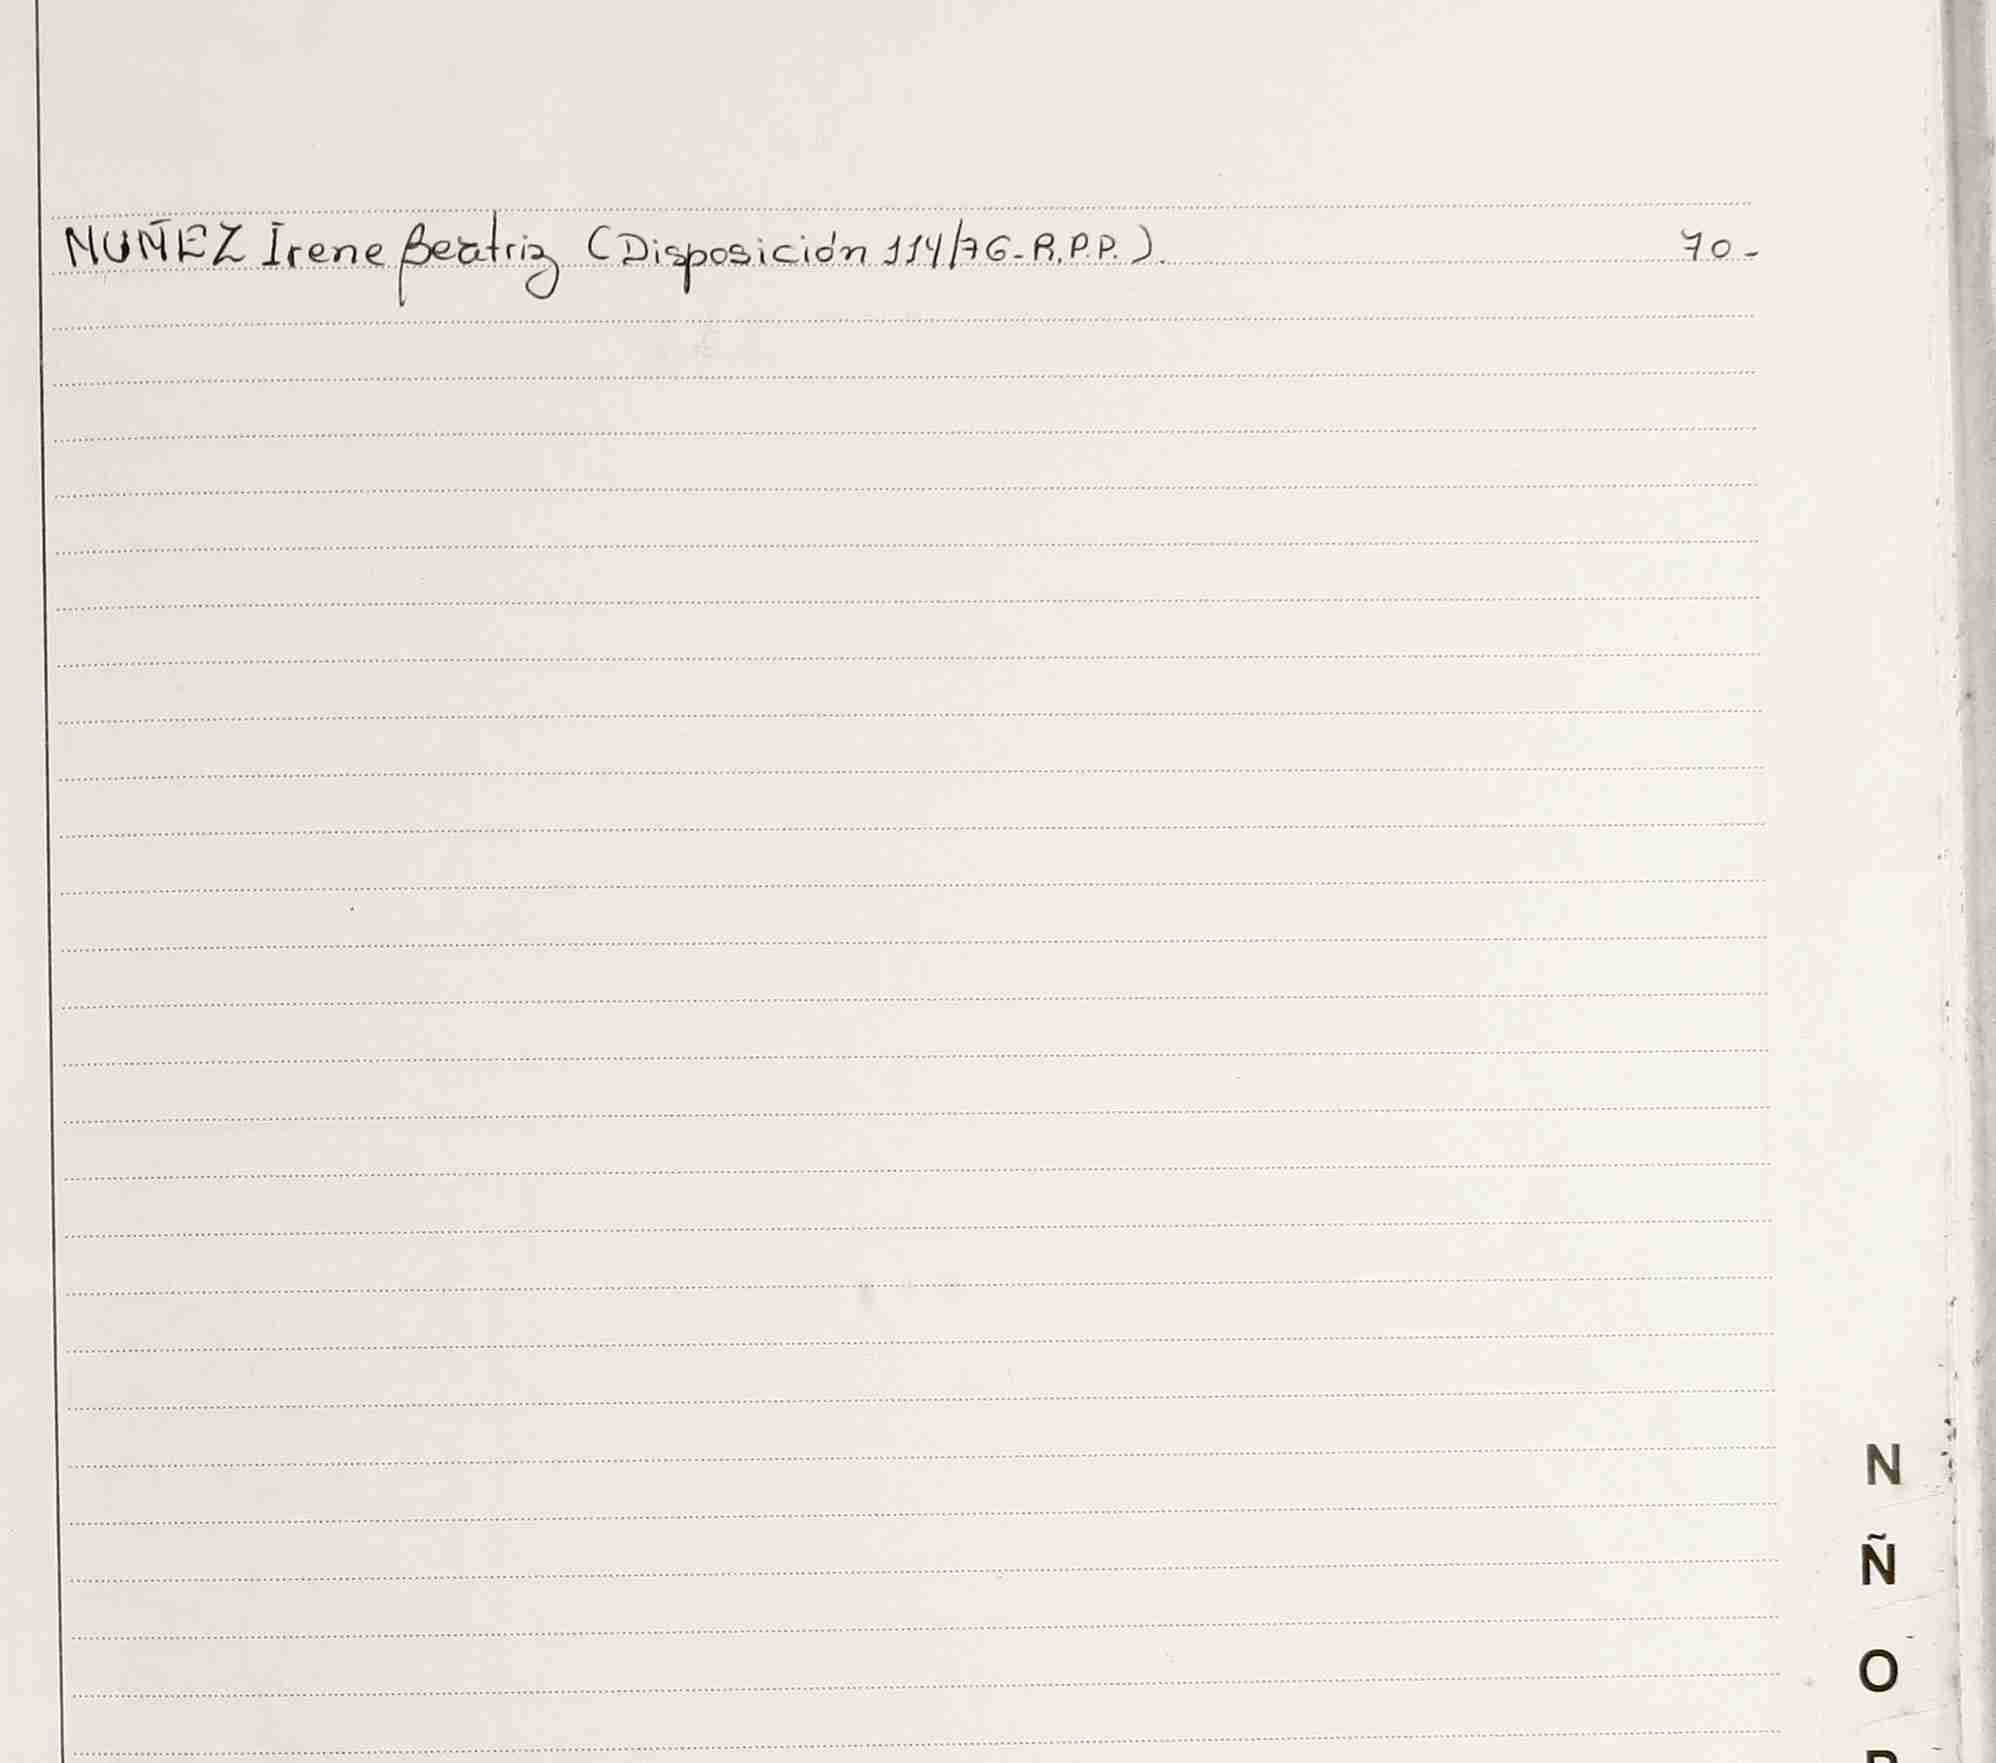 NUÑEZ Irene Beatriz (Disposición 114/76-R.P.P.). 70-
N
Ñ
O